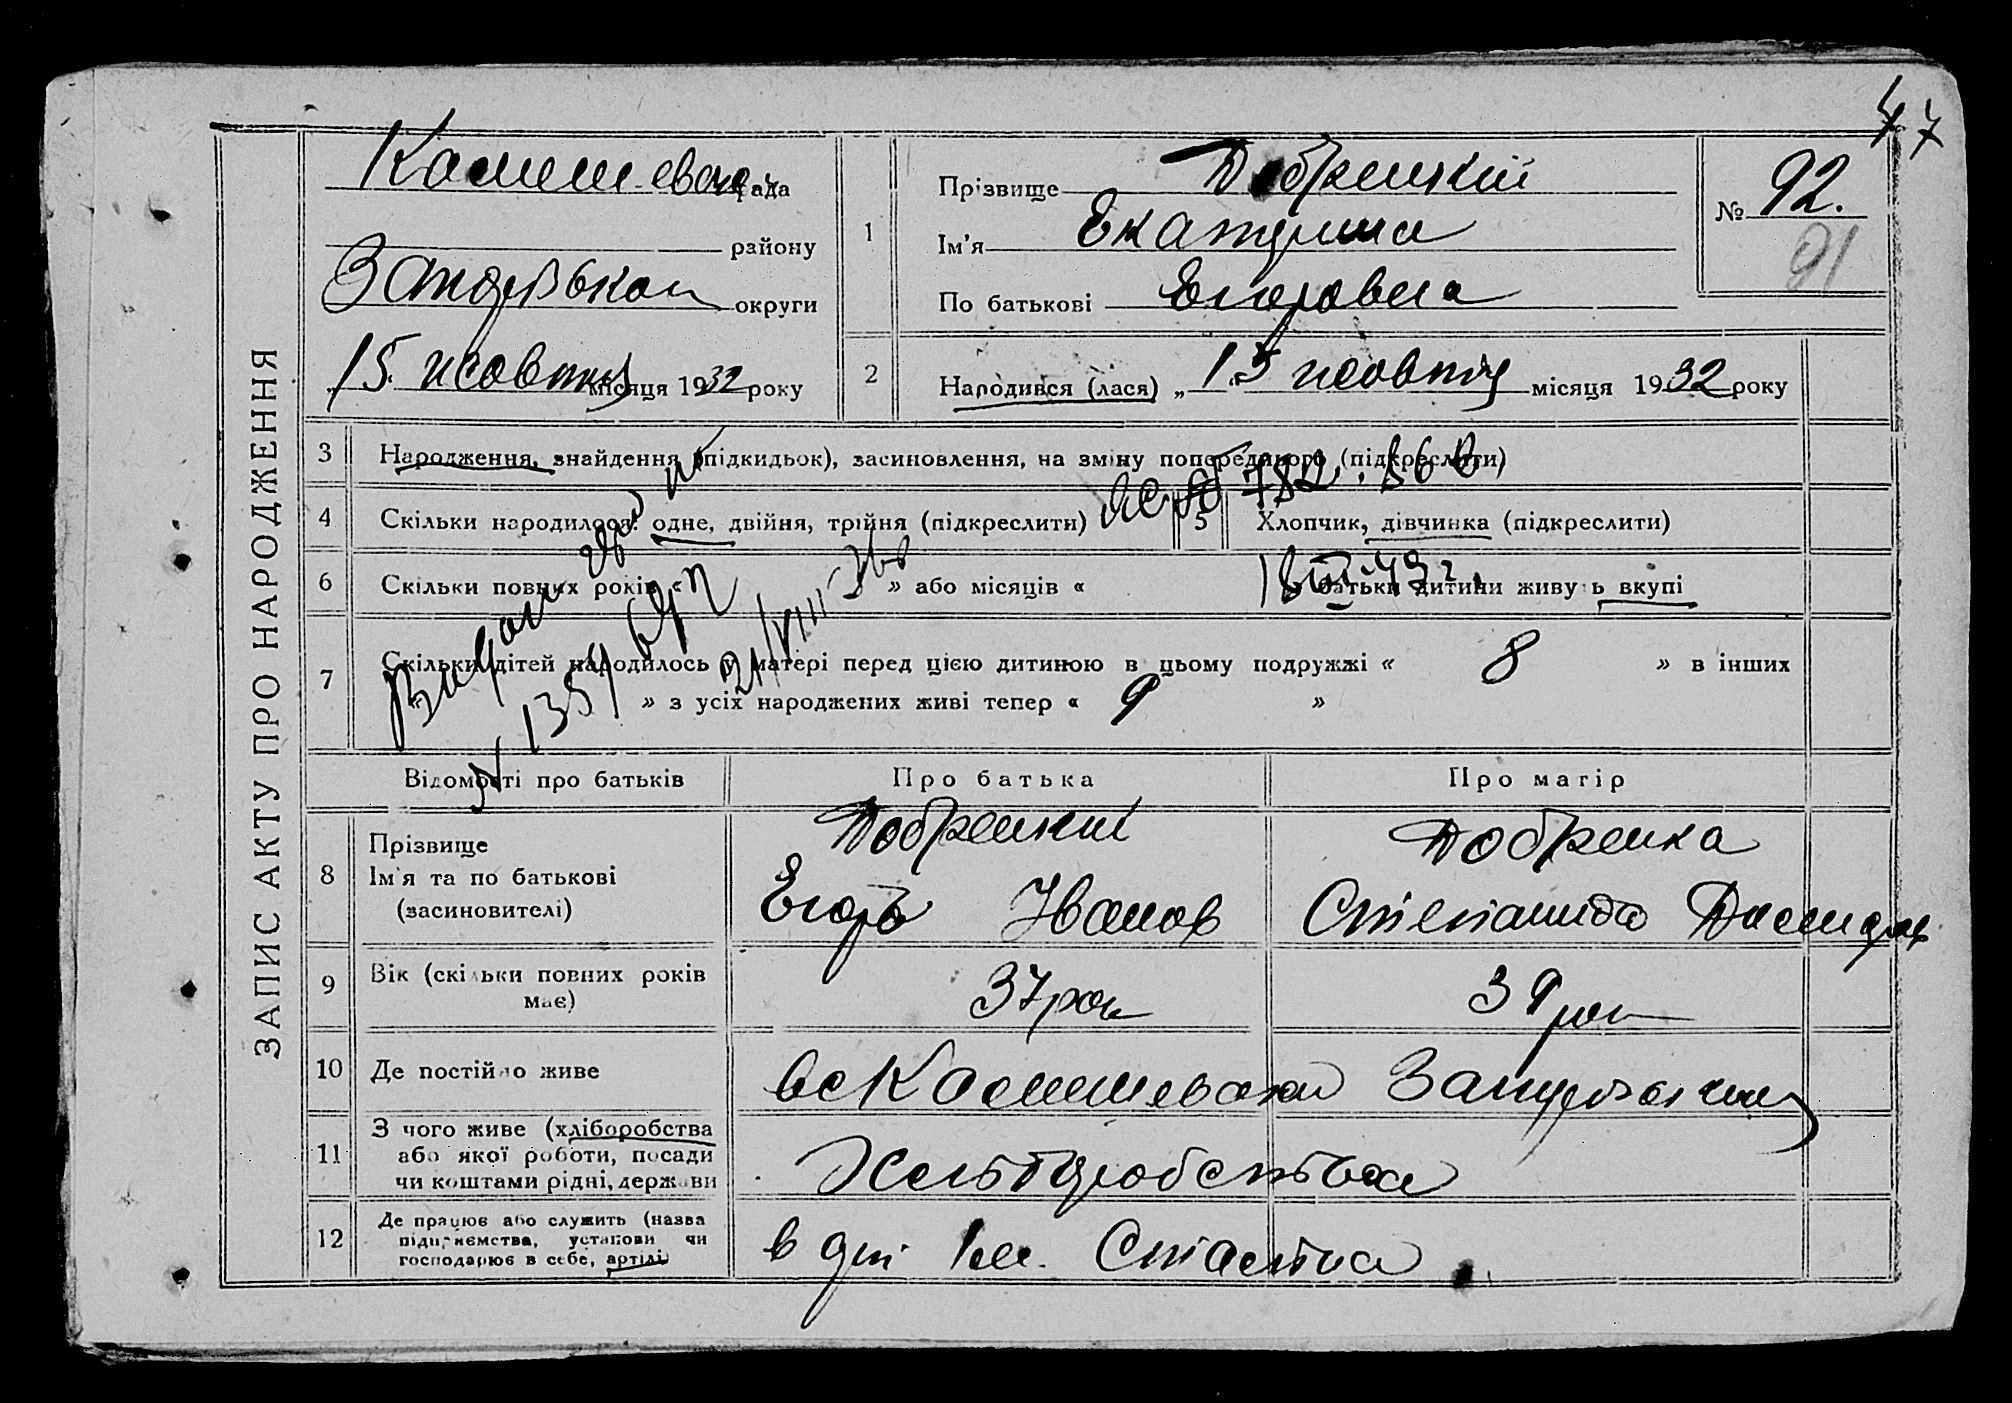 47
ЗАПИС АКТУ ПРО НАРОДЖЕННЯ
рада
району
округи
15 жовтня місяця 1932 року
1
Прізвище Добренький
Ім'я Екатерина
По батькові Егоровна
№ 92.
91
2
Народився (лася) „15 жовтня місяця 1932 року
3 Народження, знайдення (підкидьок), засиновлення, на зміну попереднього (підкреслити)
4 Скільки народилося: одне, двійня, трійня (підкреслити)
5 Хлопчик, дівчинка (підкреслити)
6 Скільки повних років « » або місяців « батьки дитини живуть вкупі
7 Скільки дітей народилось у матері перед цією дитиною в цьому подружжі « 8 » в інших
» з усіх народжених живі тепер « 9 »
№ 1359
21/VIII-36
Відомості про батьків Про батька Про матір
8 Прізвище
Ім'я та по батькові
(засиновителі)
Добренький
Егор Иванов
Добренка
Степанида
9 Вік (скільки повних років
має)
37 рок
39 рок
10 Де постійно живе
11 З чого живе (хліборобства
або якої роботи, посади
чи коштами рідні, держави
12 Де працює або служить (назва
підприємства, установи чи
господарює в себе, артілі)